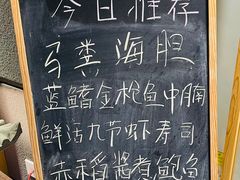 今日推荐
马粪海胆
蓝鳍金枪鱼中腩
鲜活九节虾寿司
赤稻酱煮鲍鱼